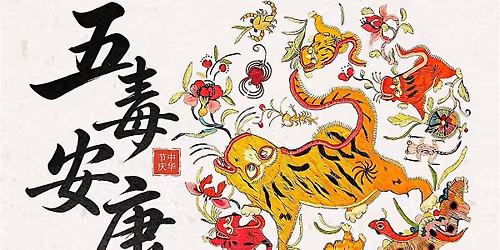 五毒安康
中华
节庆